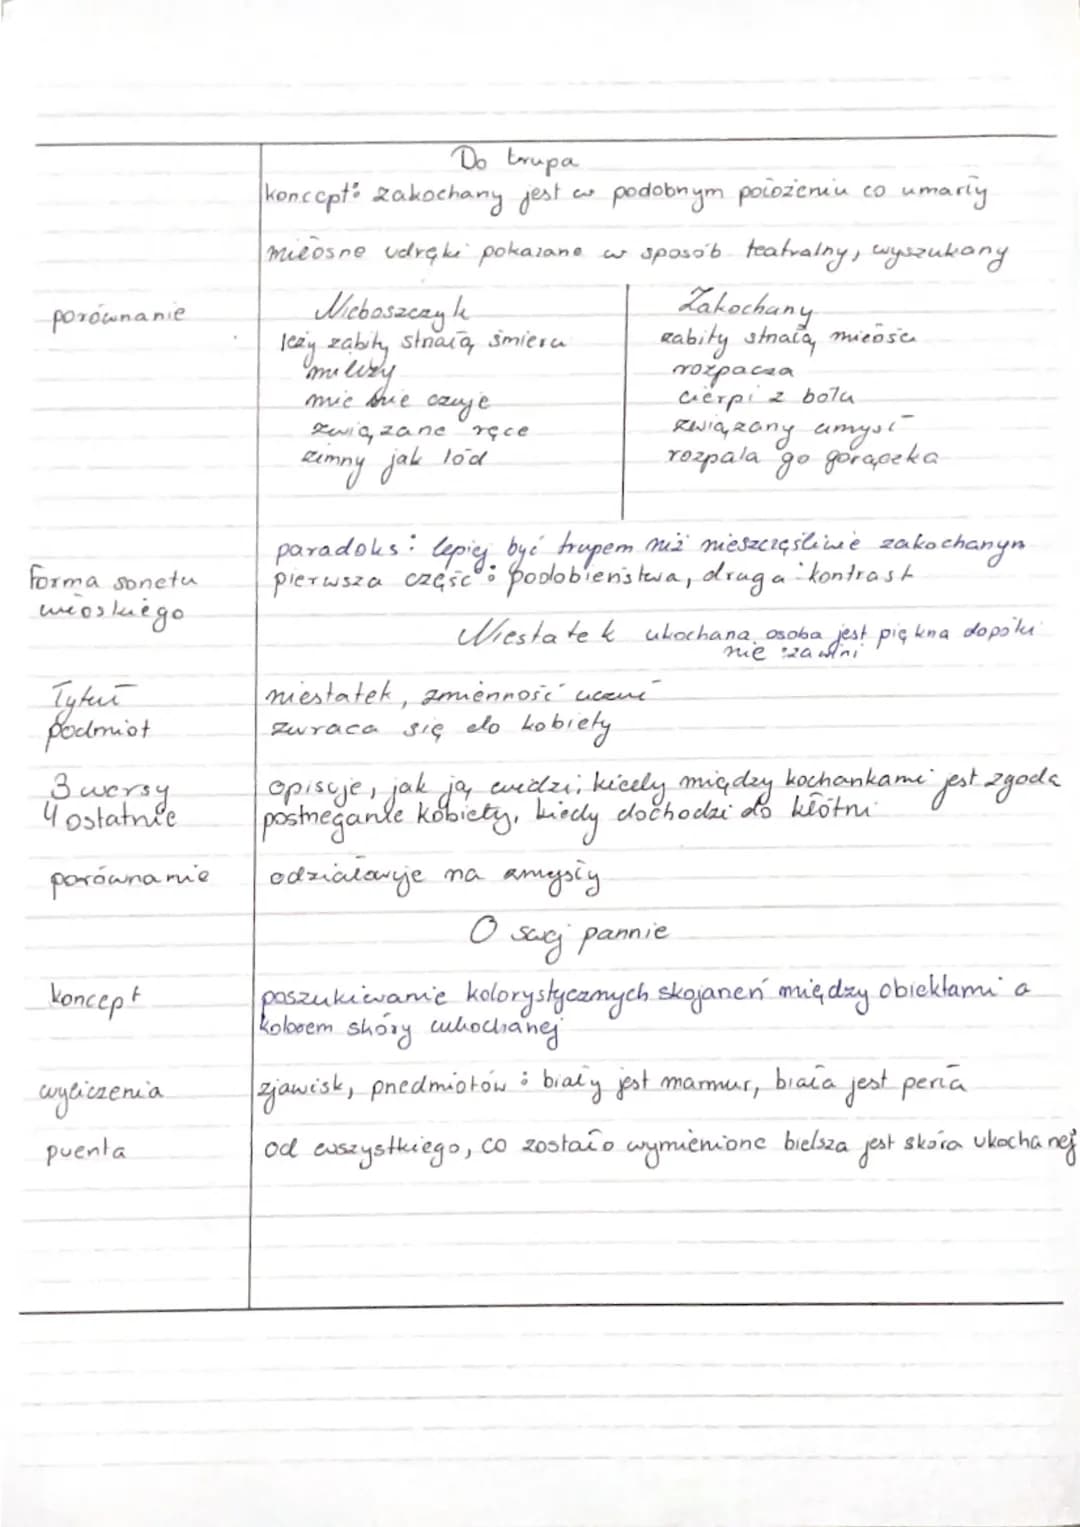 Do trupa
koncept: zakochany jest w podobnym położeniu co umarły
miłosne udręki pokazane w sposób teatralny, wyszukany
porównanie
Nieboszczyk
Zakochany
leży zabity strzałą śmierci
zabity strzałą miłości
milczy
rozpacza
nic nie czuje
cierpi z bólu
związane ręce
związany umysł
zimny jak lód
rozpala go gorączka
paradoks: lepiej być trupem niż nieszczęśliwie zakochanym
forma sonetu
pierwsza część: podobieństwa, druga: kontrast
włoskiego
Niestatek ukochana osoba jest piękna dopóki
nie zawini
Tytuł
niestatek, zmienność uczuć
podmiot
zwraca się do kobiety
3 wersy
opisuje, jak ją widzi, kiedy między kochankami jest zgoda
4 ostatnie
postrzeganie kobiety, kiedy dochodzi do kłótni
porównanie
odziaławuje na zmysły
O swej pannie
koncept
poszukiwanie kolorystycznych skojarzeń między obiektami a
kolorem skóry ukochanej
wyliczenia
zjawisk, przedmiotów: biały jest marmur, biała jest perła
puenta
od wszystkiego, co zostało wymienione bielsza jest skóra ukochanej